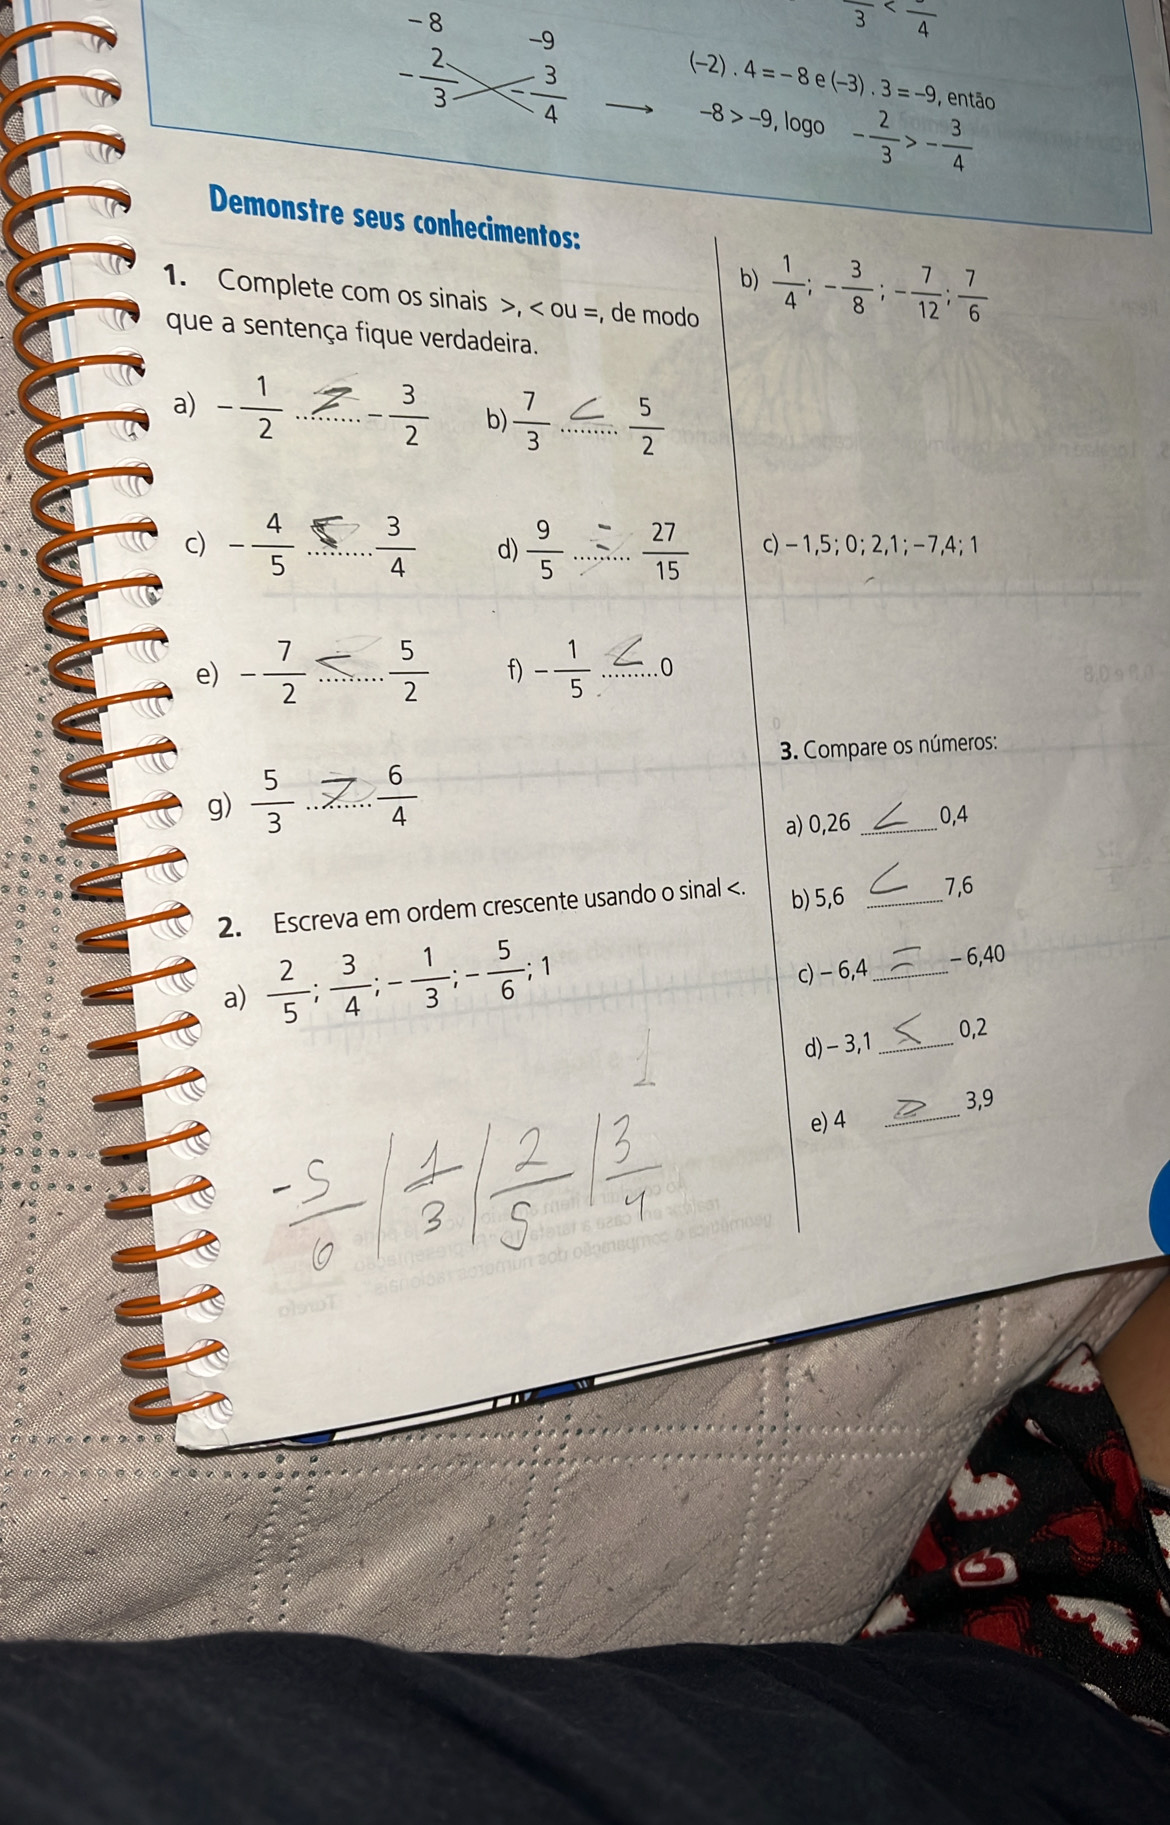 3 < 4
-8 -9
-2/3 -3/4 → (-2) . 4 = -8 e (-3) . 3 = -9, então
-8 > -9, logo -2/3 > -3/4
Demonstre seus conhecimentos:
1. Complete com os sinais >, < ou =, de modo
que a sentença fique verdadeira.
a) -1/2 ......... -3/2 b) 7/3 < 5/2
c) -4/5 ......... 3/4 d) 9/5 = 27/15
e) -7/2 < 5/2 f) -1/5 < 0
g) 5/3 > 6/4
2. Escreva em ordem crescente usando o sinal <.
a) 2/5; 3/4; -1/3; -5/6; 1
1
-5/6 | 1/3 | 2/5 | 3/4
b) 1/4; -3/8; -7/12; 7/6
c) -1,5; 0; 2,1; -7,4; 1
3. Compare os números:
a) 0,26 < 0,4
b) 5,6 < 7,6
c) -6,4 = -6,40
d) -3,1 < 0,2
e) 4 > 3,9